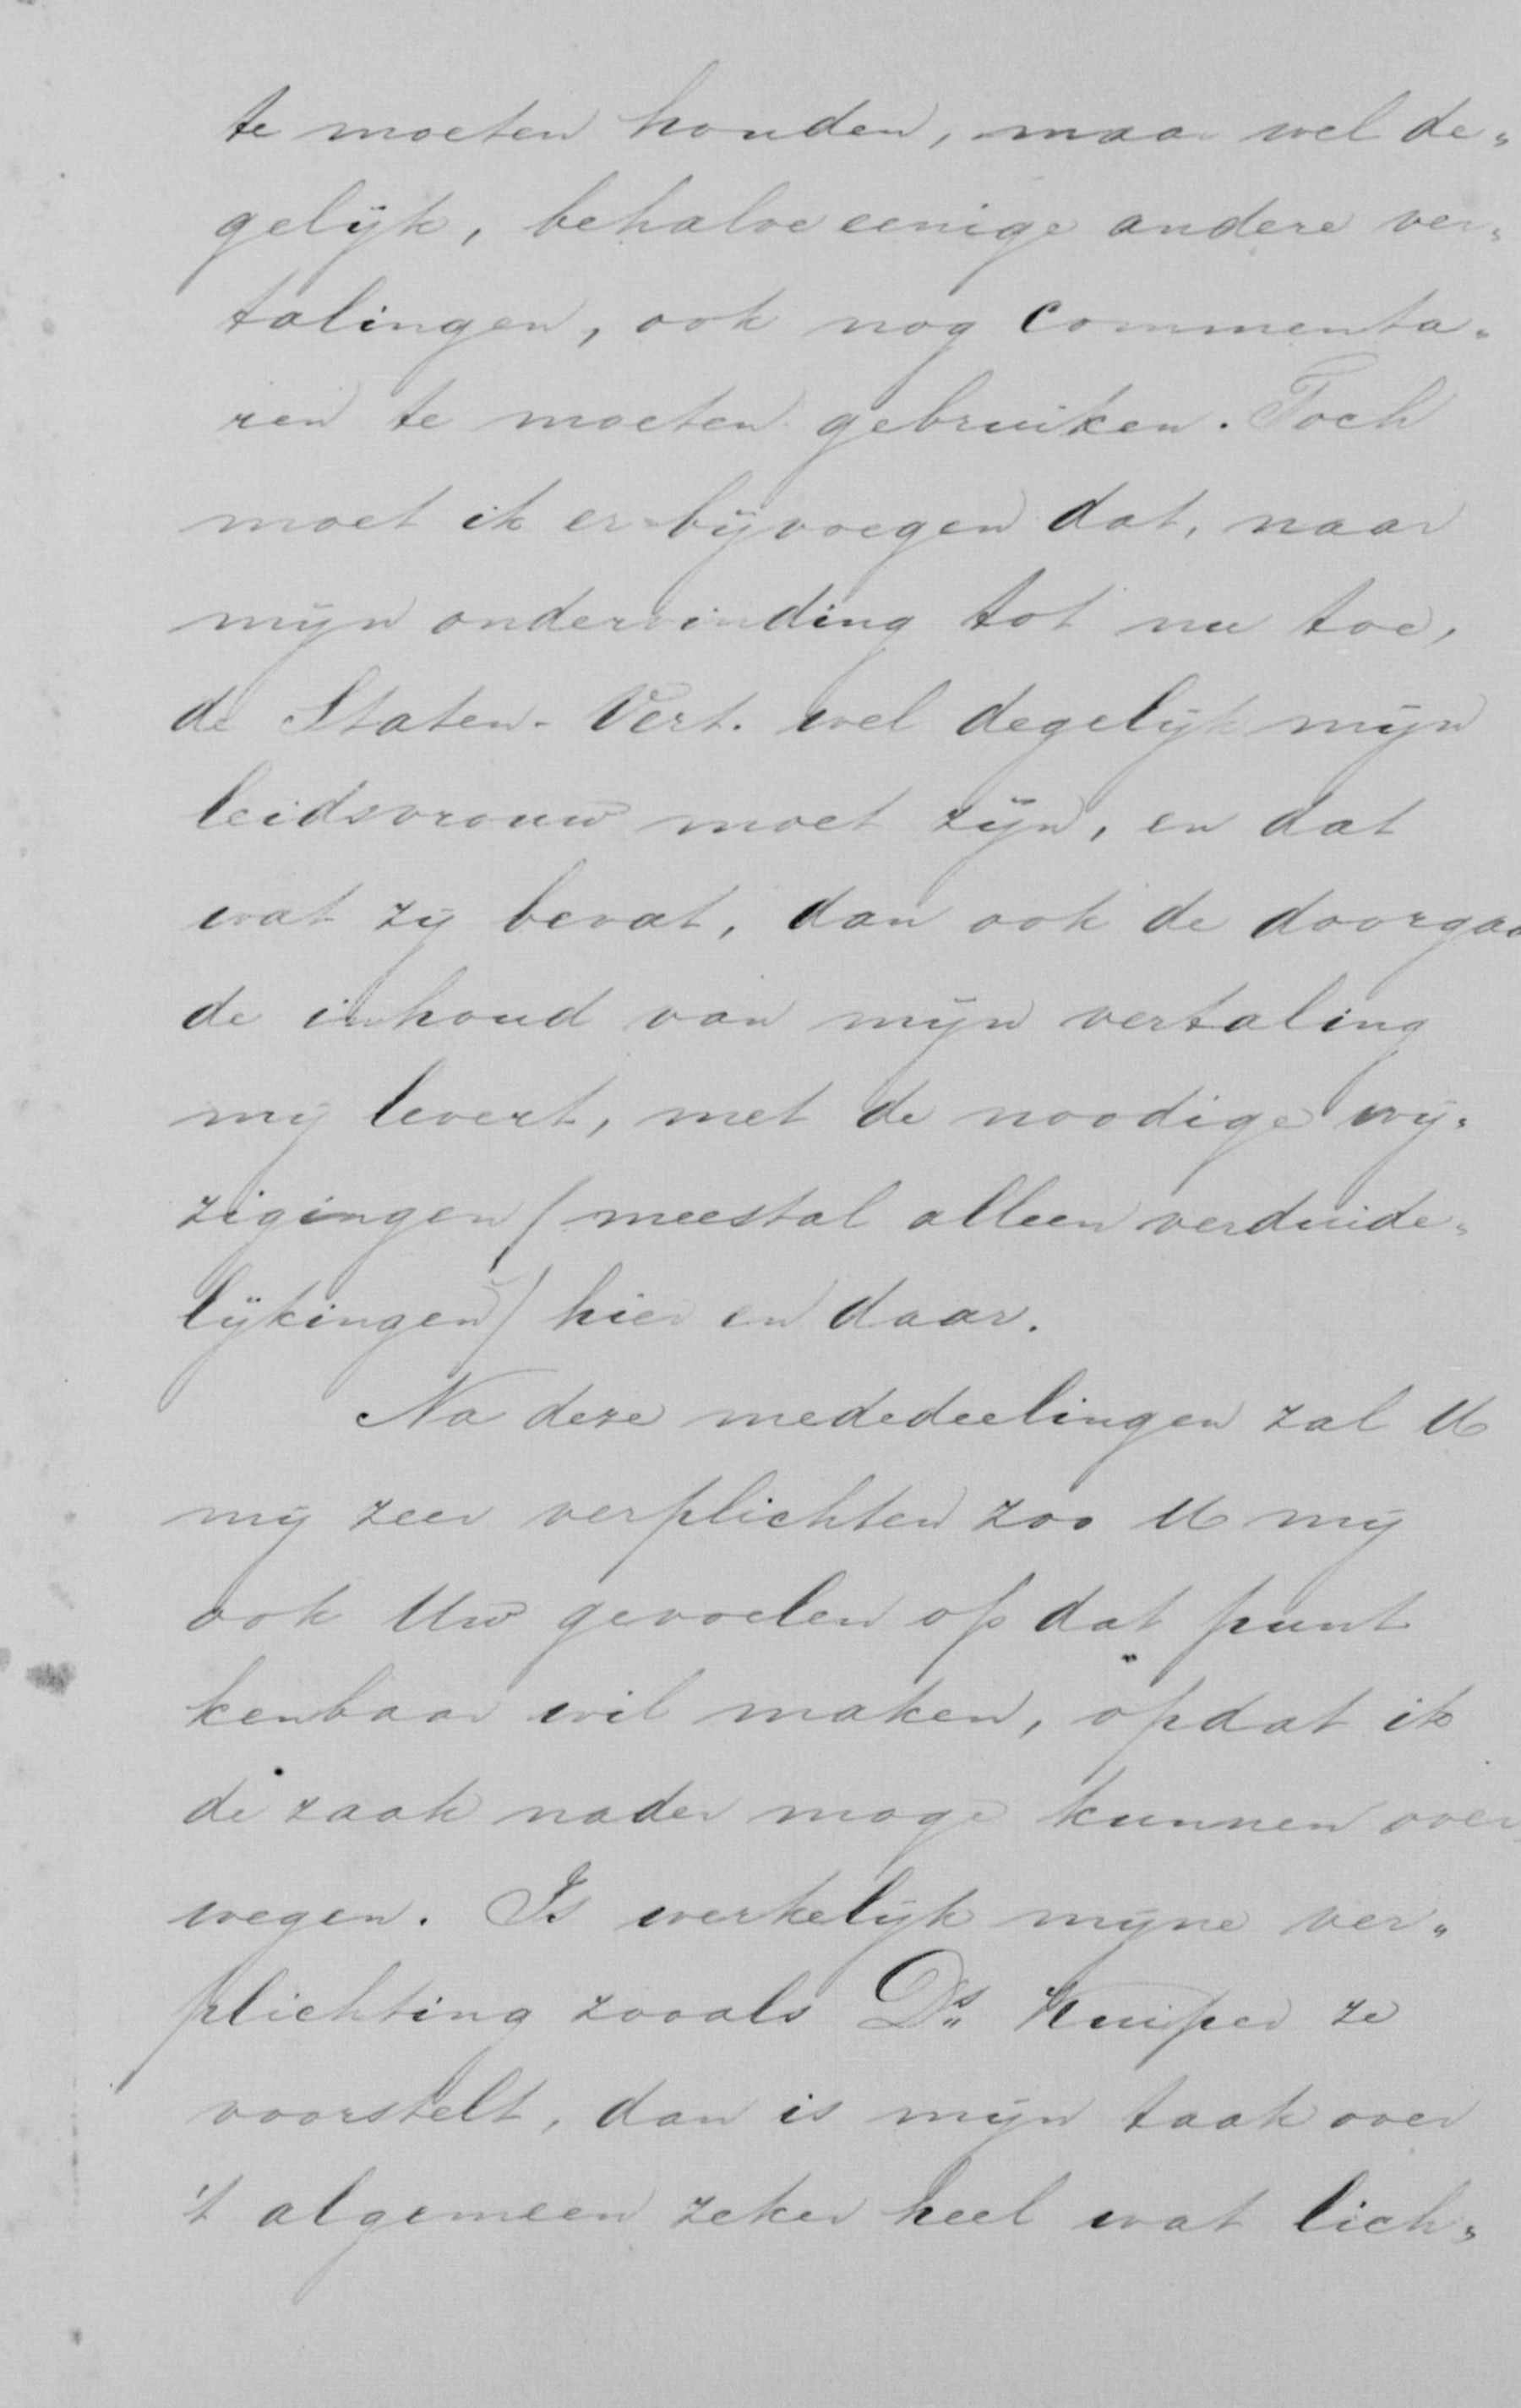 te moeten houden, maar wel de„
gelijk, behalve eenige andere ver„
talingen, ook nog commenta„
ren te moeten gebruiken. Toch
moet ik er bijvoegen dat, naar
mijn ondervinding tot nu toe,
de Staten-Vert. wel degelijk mijn
leidsvrouw moet zijn, en dat
wat zij bevat, dan ook de doorgaa
de inhoud van mijn vertaling
mij levert, met de noodige wij„
zigingen (meestal alleen verduide„
lijkingen) hier en daar.
Na deze mededeelingen zal U
mij zeer verplichten zoo U mij
ook Uw gevoelen op dat punt
kenbaar wil maken, opdat ik
de zaak nader moge kunnen over
wegen. Is werkelijk mijne ver„
plichting zooals Ds. Kuiper ze
voorstelt, dan is mijn taak over
't algemeen zeker heel wat lich„